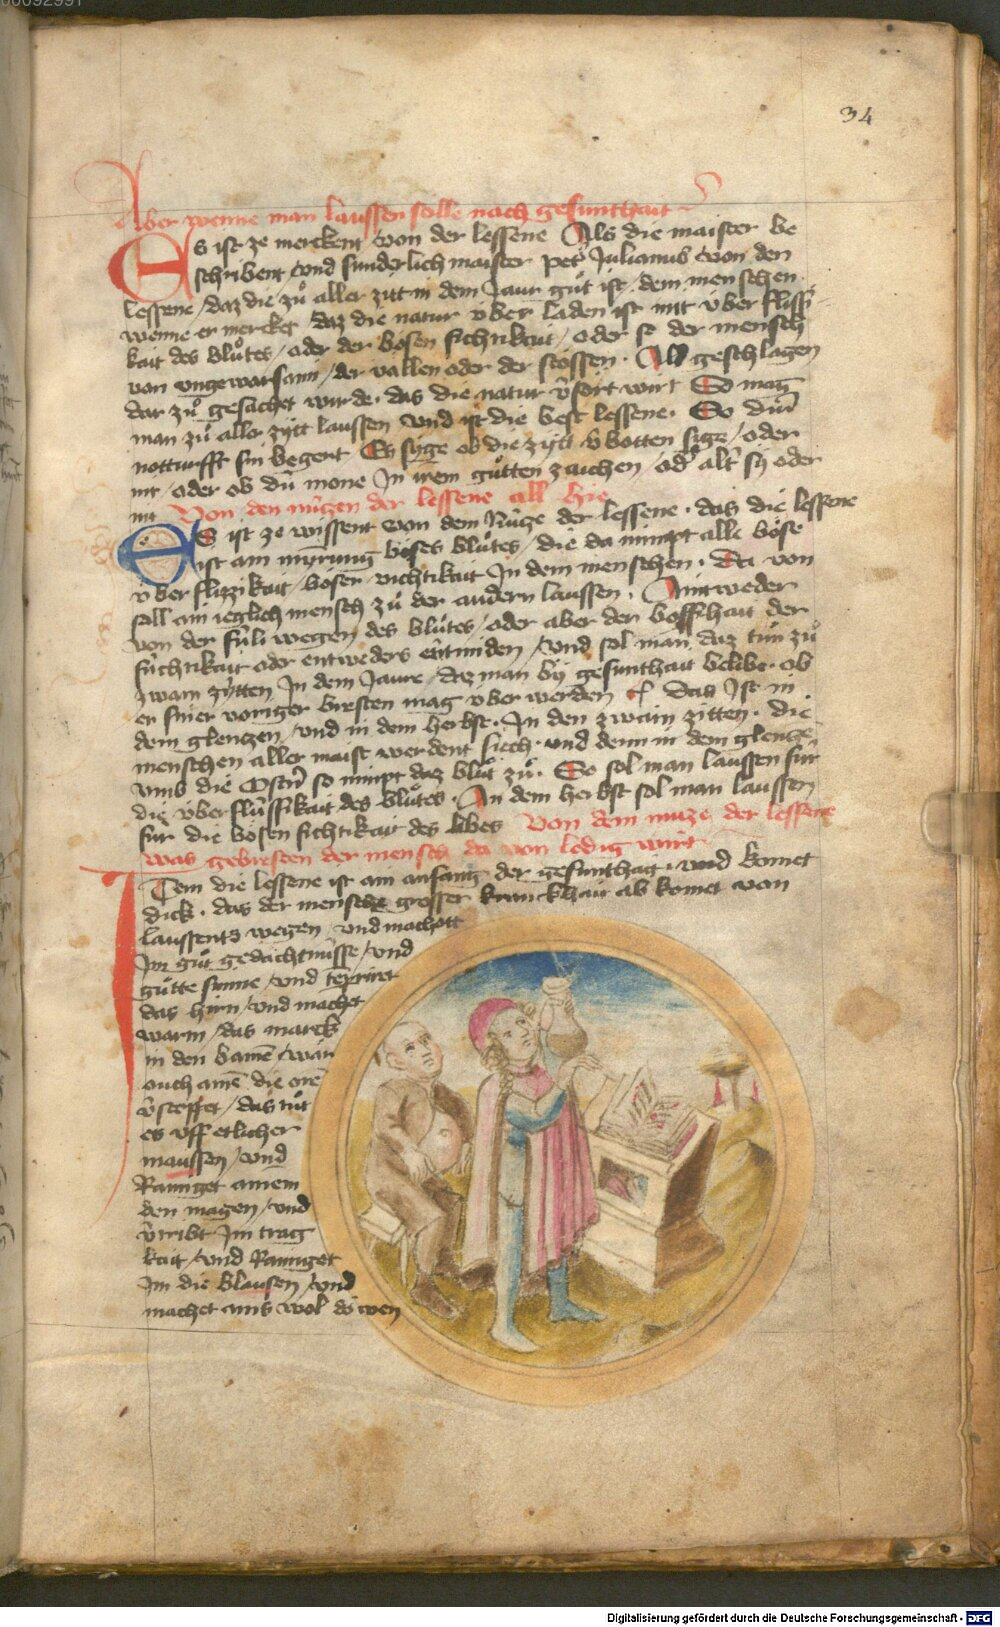 34
Aber wenne man laussen sölle nach gesunthait
Es ist ze merckent von der lessene Als die maister be
schribent / vnd sunderlich maister pet Julianus von den
lessene / daz die zů aller zitt in dem Jaur gůt ist / dem menschen
wenne er mercket daz die natur über laden ist mit über flüssi
kait des blůtes / oder der bösen fichtikait / oder so der mensch
von vngewarsami / der vällen oder der stössen. geschlagen
dar zů gesůchet wurde. das die natur v̂sört wirt So mag
man zů aller zytt laussen vnd ist die best lessene. So din
notturfft sin begert Es syge ob die zytt v̂botten syge / oder
nit / oder ob dü mone In irem gůtten zaichen / od alt sy oder
nit Von den nützen der lessene all hie
Es ist ze wissent von dem Nütze der lessene. das die lessene
ist ain mÿrung böses blůtes / die da nimpt alle böse
v̈ber flissikait / bösen vichtikait In dem menschen. Da von
sall ain ieglich mensch zů der audern laussen. Aintweder
von der füli wegen des blůtes / oder aber der bosshait der
füchtikait oder entweders entmiden / vnd sol man daz tůn zů
zwain zytten In dem Jaure / daz man by gesunthait belibe. ob
er siner voriger bresten mag v̈ber werden Das Ist in
dem glentzen / vnd in dem herbst. In den zwain zitten. die
menschen aller maist werdent siech. vnd denn in dem glentze
vmb die Ostrn so nimpt daz blůt zů. So sol man laussen für
die über flüssikait des blůtes. In dem herbst sol man laussen
für die bösen fichtikait des libes Von dem nutze der lessene
was gebresten der mensch da von ledig wirt
Item die lessene ist ain anfang der gesunthait. vnd komet
dick. das der mensch grosser kranckhait ab komet von
laussentz wegen vnd machott
Im gůt gedächtnüsse / vnd
gůtte sinne / vnd
das hirn / vnd machet
warm / das marck
in den bainē / wan
ouch ainē die orē
v̂stopffet / das tůt
es vff etlicher
maussen / vnd
Rainiget ainem
den magen / vnd
v̂tribt Im trag
kait / vnd Rainiget
Im die blausen / vnd
machet ains wol döwen
Digitalisierung gefördert durch die Deutsche Forschungsgemeinschaft - DFG